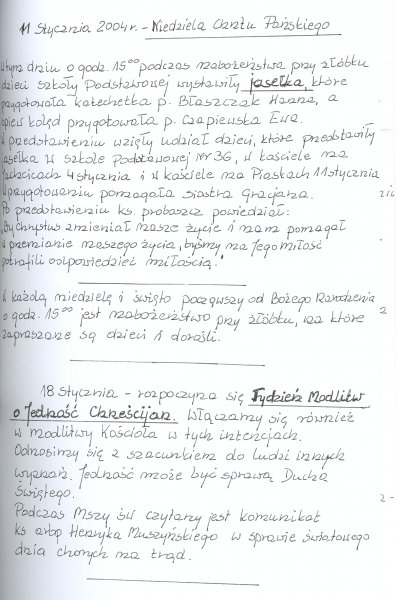 11 Stycznia 2004r. - Niedziela Chrztu Pańskiego
W tym dniu o godz. 15⁰⁰ podczas nabożeństwa przy żłóbku
dzieci szkoły Podstawowej wystawiły jasełka, które
przygotowała katechetka p. Błaszczak Hanna, a
śpiew kolęd przygotowała p. Czapiewska Ewa.
W przedstawieniu wzięły udział dzieci, które przedstawiły
jasełka w szkole Podstawowej Nr 36, w kościele na
4 stycznia i w kościele na Piaskach 11 stycznia
W przygotowaniu pomagała siostra Gracjana.
Po przedstawieniu ks. proboszcz powiedział:
"By Chrystus zmieniał nasze życie i nam pomagał
w przemianie naszego życia, byśmy na Jego miłość
potrafili odpowiedzieć miłością."
W każdą niedzielę i święto począwszy od Bożego Narodzenia
o godz. 15⁰⁰ jest nabożeństwo przy żłóbku, na które
zapraszane są dzieci i dorośli.
18 stycznia - rozpoczyna się Tydzień Modlitw
o Jedność Chrześcijan. Włączamy się również
w modlitwy Kościoła w tych intencjach.
Odnosimy się z szacunkiem do ludzi innych
wyznań. Jedność może być sprawą Ducha
Świętego.
Podczas Mszy św czytany jest komunikat
ks arbp Henryka Muszyńskiego w sprawie światowego
dnia chorych na trąd.